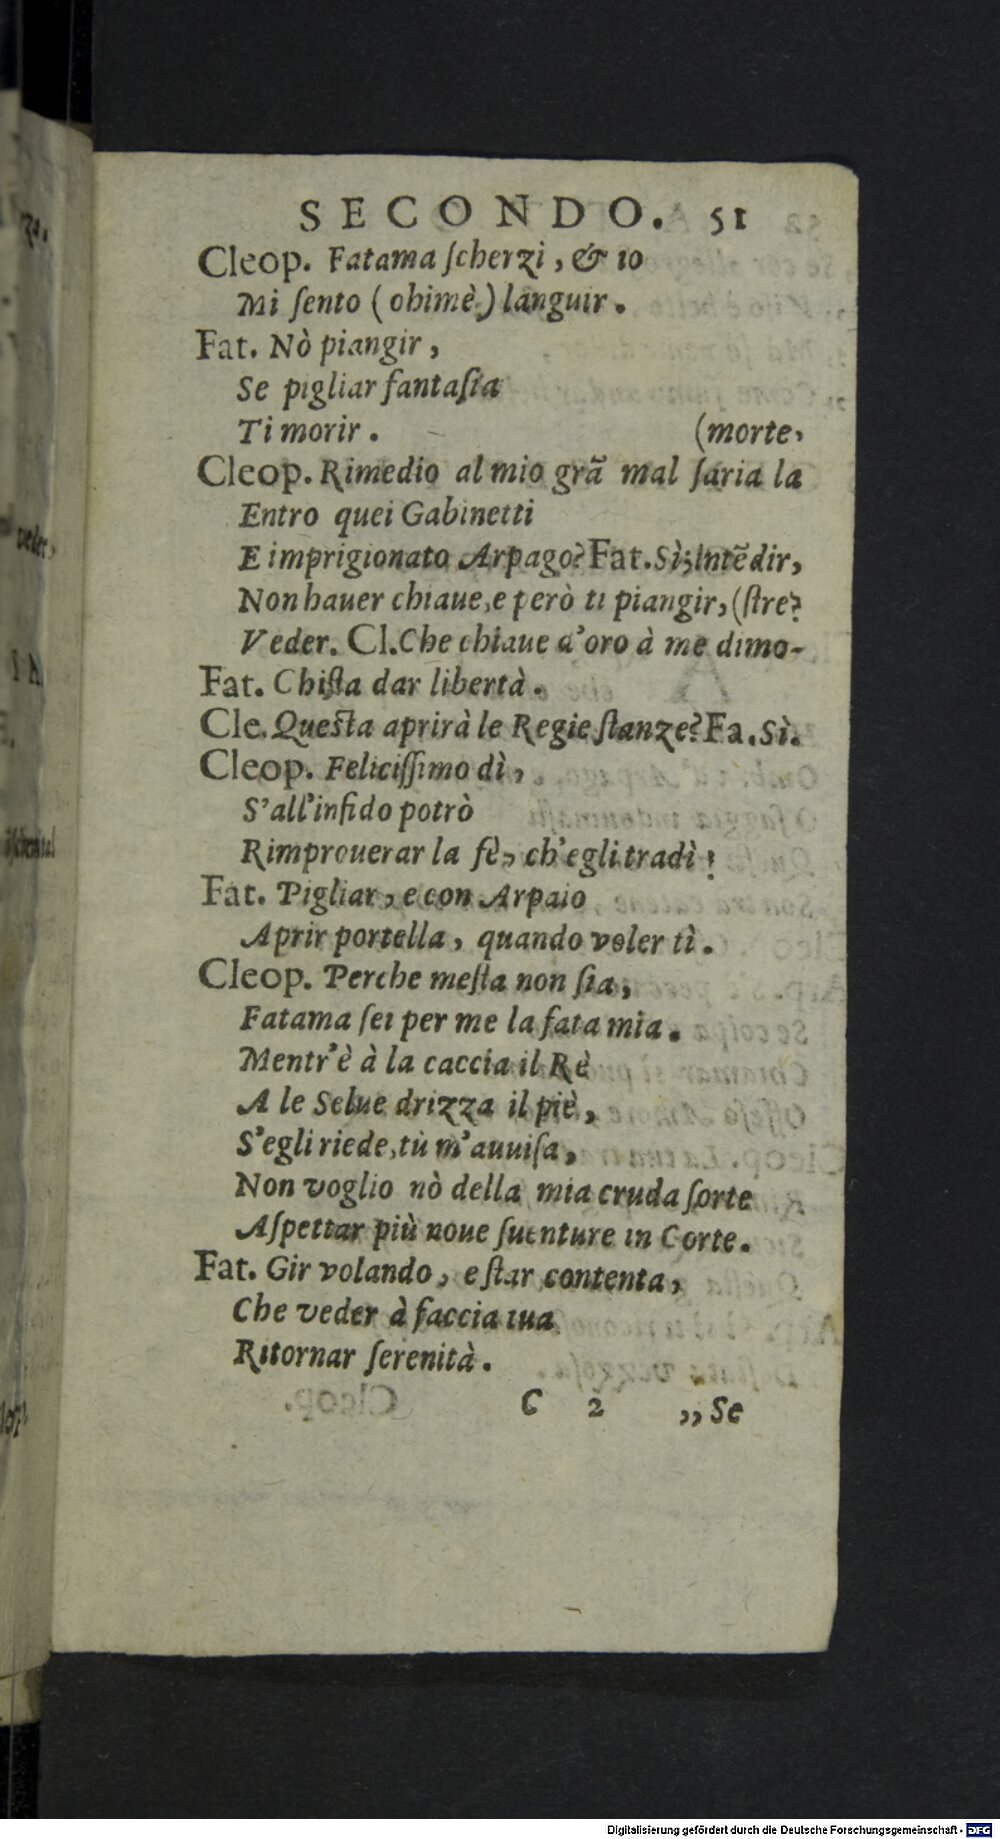 SECONDO. 51
Cleop. Fatama ſcherzi, & io
Mi ſento (ohimè) languir.
Fat. Nò piangir,
Se pigliar fantaſia
Ti morir. (morte,
Cleop. Rimedio al mio grã mal ſaria la
Entro quei Gabinetti
E imprigionato Arpago? Fat. Sì; Intẽdir,
Non hauer chiaue, e però ti piangir, (ſtre?
Veder. Cl. Che chiaue d'oro à me dimo-
Fat. Chiſta dar libertà.
Cle. Queſta aprirà le Regie ſtanze? Fa. Sì.
Cleop. Feliciſſimo dì,
S'all'infido potrò
Rimprouerar la fè, ch'egli tradì!
Fat. Pigliar, e con Arpaio
Aprir portella, quando voler tì.
Cleop. Perche meſta non ſia,
Fatama ſei per me la fata mia.
Mentr'è à la caccia il Rè
A le Selue drizza il piè,
S'egli riede, tù m'auuiſa,
Non voglio nò della mia cruda ſorte
Aſpettar più noue ſuenture in Corte.
Fat. Gir volando, e ſtar contenta,
Che veder à faccia tua
Ritornar ſerenità.
C 2 ,,Se
Digitalisierung gefördert durch die Deutsche Forschungsgemeinschaft - DFG